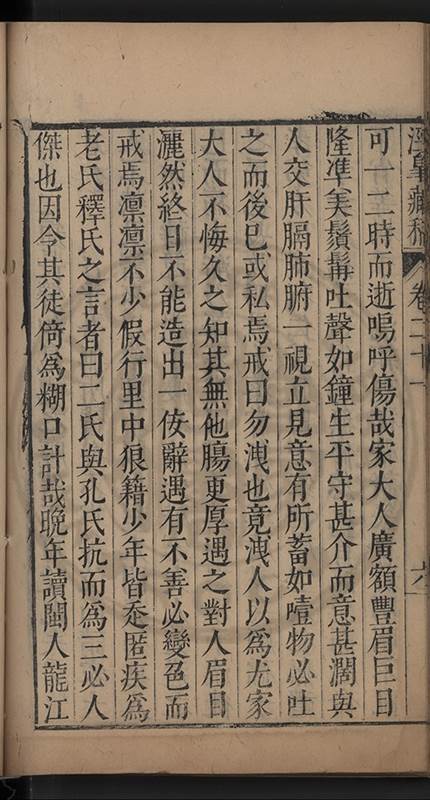 涇臯藏稿 卷二十一 六
可一二時而逝嗚呼傷哉家大人廣額豐眉巨目
隆準美鬚髯吐聲如鐘生平守甚介而意甚濶與
人交肝膈肺腑一視立見意有所蓄如噎物必吐
之而後已或私焉戒曰勿洩也竟洩人以為尤家
大人不悔久之知其無他腸更厚遇之對人眉目
灑然終日不能造出一佞辭遇有不善必變色而
戒焉凛凛不少假行里中狼籍少年皆走匿疾為
老氏釋氏之言者曰二氏與孔氏抗而為三必人
傑也因令其徒倚為糊口計哉晚年讀閩人龍江